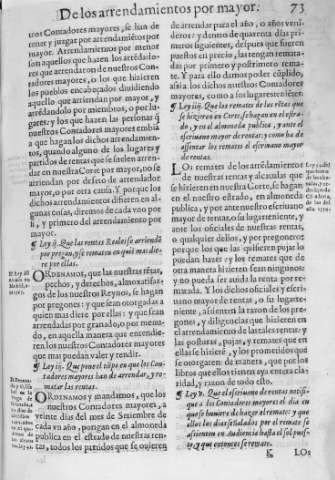 De los arrendamientos por mayor. 73
tros Contadores mayores, se han de
tener y juzgar por arrendamiẽtos por
mayor. Arrendamientos por menor
son aquellos que hazen los arrẽdado-
res que arrendaron de nuestros Con-
tadores mayores, o los que hizieren
los pueblos encabeçados diuidiendo
aquello que arriendan por mayor, y
arrẽdandolo por miembros, o por lu-
gares: y los que hazen las personas q̃
nuestros Contadores mayores embiã
a que hagan los dichos arrendamien-
tos, quando alguno de los lugares y
partidos de rentas que se suelen arren-
dar en nuestra Corte por mayor, no se
arriendan por defeto de arrendador
mayor, o por otra causa. Y porque los
dichos arrendamientos difieren en al-
gunas cosas, diremos de cada vno por
si, y primero del arrendamiento por
mayor.
¶ Ley ij. Que las rentas Reales se arriendẽ
por pregon, y se rematen en quiẽ mas die-
re por ellas.
ORDENAMOS, que las nuestras rẽtas,
pechos, y derechos, almoxarifaz-
gos de los nuestros Reynos, se hagan
por pregones: y que sean otorgadas a
quien mas diere por ellas: y que sean
arrendadas por granado, o por menu-
do, en aquella manera que entendie-
ren los nuestros Contadores mayores
que mas puedan valer y rendir.
¶ Ley iij. Que pone el tiẽpo en que los Con-
tadores mayores han de arrendar, y re-
matar las rentas.
ORDENAMOS y mandamos, que los
nuestros Contadores mayores, a
veinte dias del mes de Setiembre de
cada vn año, pongan en el almoneda
publica en el estrado de nuestras ren-
tas, todos los partidos que se ouieren
de arrendar para el año, o años venide-
ros: y dentro de quarenta dias pri-
meros siguientes, despues que fueren
puestos en precio, las tengan remata-
das por primero y postrimero rema-
te. Y para ello damos poder cũplido,
assi a los dichos nuestros Contadores
mayores, como a sus lugares tenientes.
¶ Ley iiij. Que los remates de las rẽtas que
se hizieren en Corte, se hagan en el estra-
do, y en el almoneda publica, y ante el
escriuano mayor de rentas; y como ha de
assentar los remates el escriuano mayor
de rentas.
LOS remates de los arrẽdamientos
de nuestras rentas y alcaualas que
se hizieren en nuestra Corte, se hagan
en el nuestro estrado, en almoneda
publica, y por ante nuestro escriuano
mayor de rentas, o su lugarteniente, y
ante los oficiales de nuestras rentas,
o qualquier dellos, y por pregonero:
porque los que las quisieren pujar lo
puedan hazer: y los remates que de
otra manera hizieren sean ningunos:
y no puedan ser recebidos por pura
monida. Y los dichos oficiales y escri-
uano mayor de rentas, o su lugarte-
niente, assienten la razon de los pre-
gones, y diligencias que hizieren en
el arrendamiento de las tales rentas: y
las posturas, pujas, y remates que en
ellas se hizierẽ, y los prometidos que
se otorgaren: de manera, que por los
libros que ellos tienen aya entera cla-
ridad, y razon de todo esto.
¶ Ley v. Que el escriuano de rentas notifi-
que a los Contadores mayores el dia en
que se huuiere de hazer el remate: y que
ellos los dias señalados por el remate se
assienten en Audiencia hasta el sol pues-
to, y que entonces se remate.
K LOs